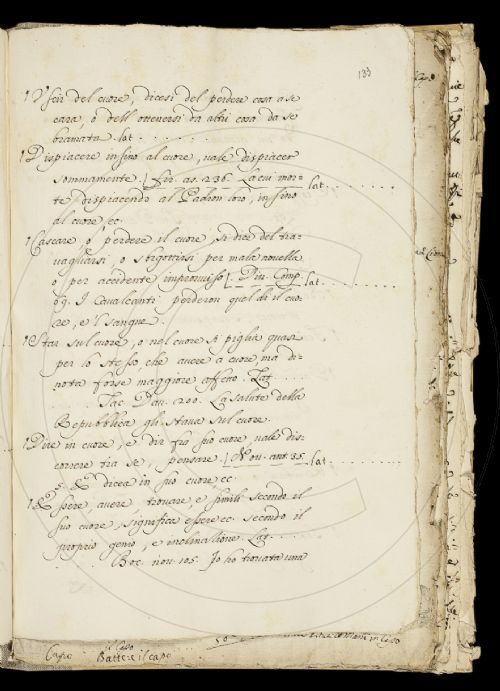 133
¶ Uscir del cuore, dicesi del perdere cosa a se
cara, o dell'ottenersi da altri cosa da se
bramata. lat. . . . . . . .
¶ Dispiacere insino al cuore, vale dispiacer
sommamente. [Fir. as. 236. La cui mor- lat. . . . . . . .
te dispiacendo al Padron loro, insino
al cuore ec.
¶ Cascare, o perdere il cuore, si dice del tra-
vagliarsi, o sbigottirsi per mala novella
o per accidente improvviso [Din. Comp. lat. . . . . . . .
69. I Cavalcanti perderon quel dì il cuo-
re, e 'l sangue.
¶ Star sul cuore, o nel cuore si piglia quasi
per lo stesso, che avere a cuore, ma di-
nota forse maggiore affetto. Lat. . . . .
Tac. Dav. 200. La salute della
Repubblica gli stava sul cuore.
¶ Dire in cuore, e dir fra suo cuore, vale dis-
correre tra se, pensare. [Nov. ant. 35. lat. . . . . . . .
5. dicea in suo cuore ec.
¶ Essere, avere, trovare, e simili secondo il
suo cuore, significa essere ec. secondo il
proprio genio, e inclinazione. Lat. . . . .
Boc. nov. 105. Io ho trovata una
Capo
Battere il capo